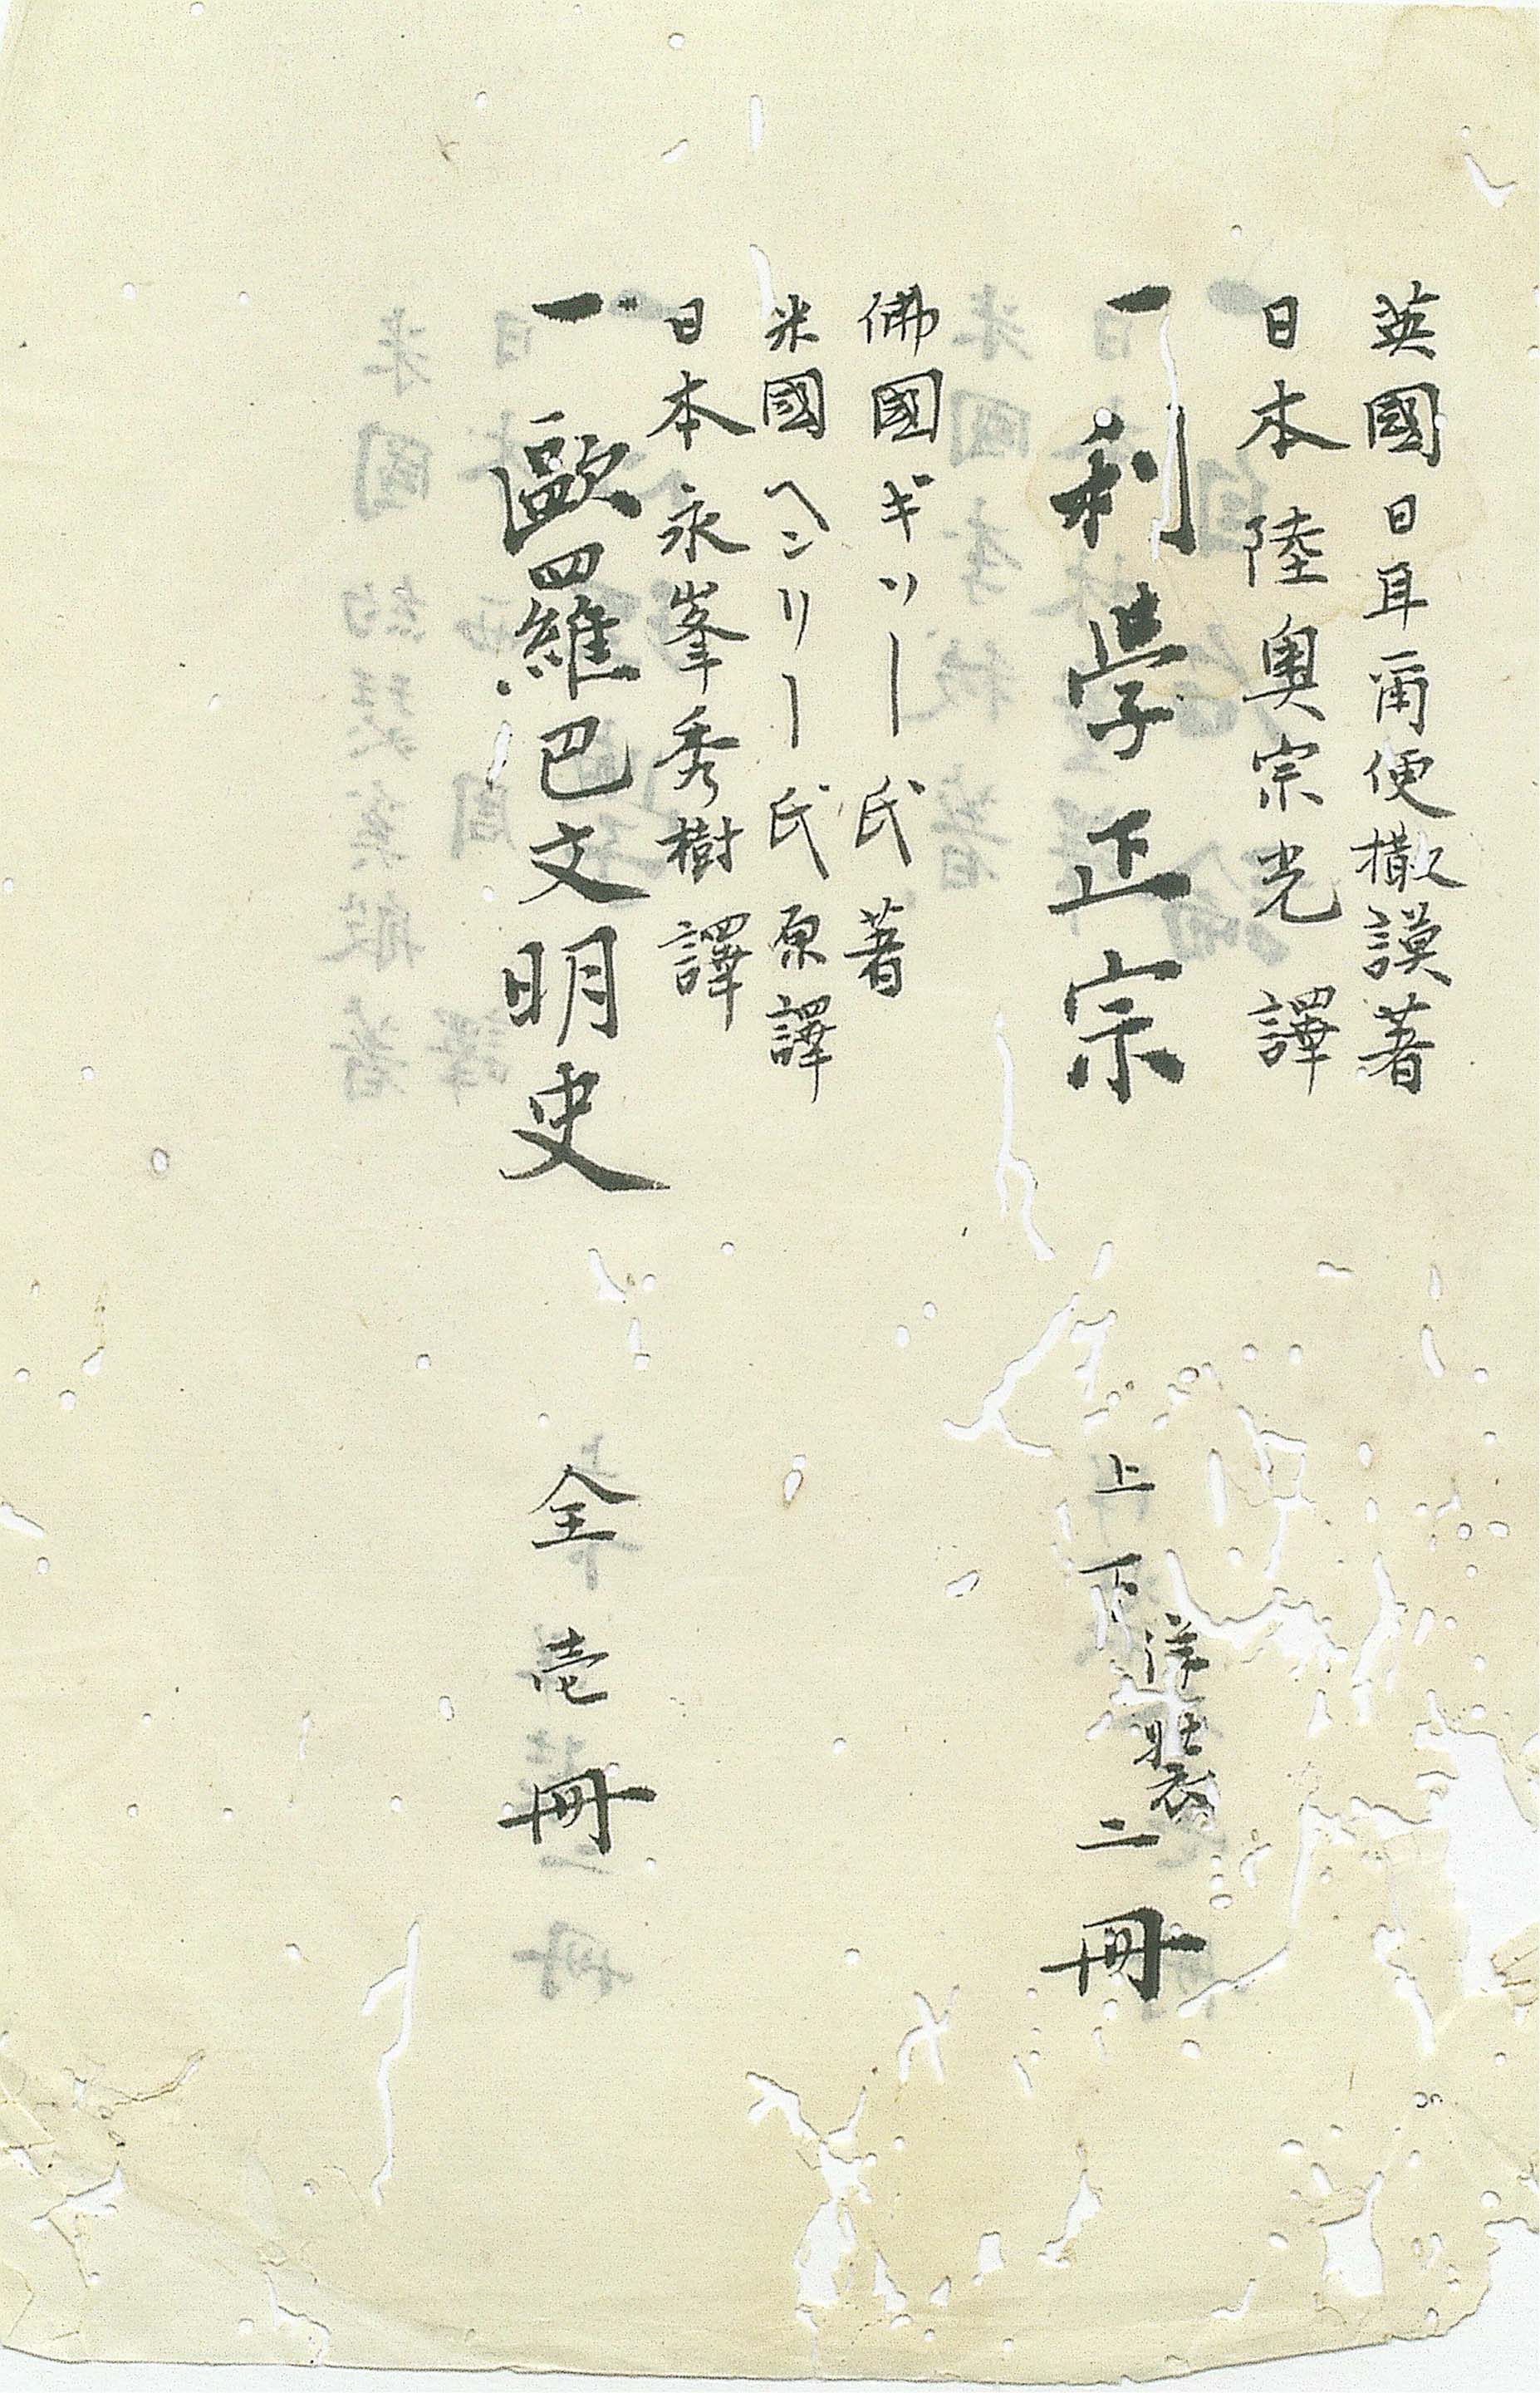 英國日耳甬便撒謨著
日本陸奥宗光譯
一利学正宗 上下洋装二冊
佛國ギソー氏著
米國ヘンリー氏原譯
日本永峯秀樹譯
一歐羅巴文明史 全壱冊